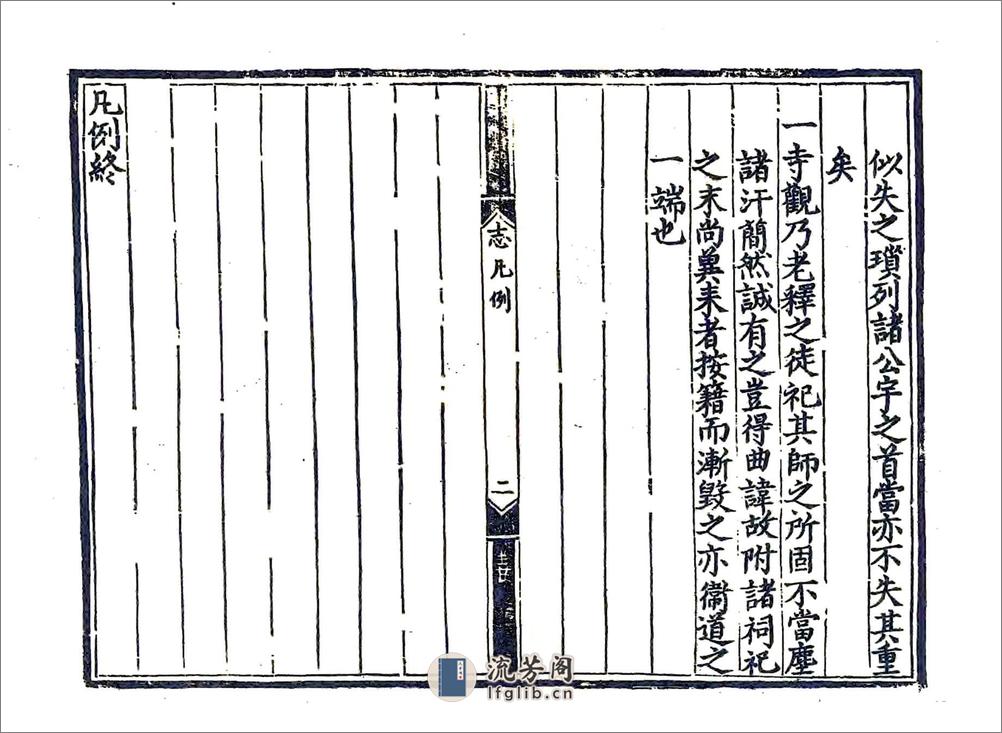 似失之瑣列諸公宇之首當亦不失其重
矣
一寺觀乃老釋之徒祀其師之所固不當塵
諸汗簡然誠有之豈得曲諱故附諸祠祀
之末尚冀来者按籍而漸毀之亦衞道之
一端也
志凡例
二
凡例終
流芳阁
lfglib.cn